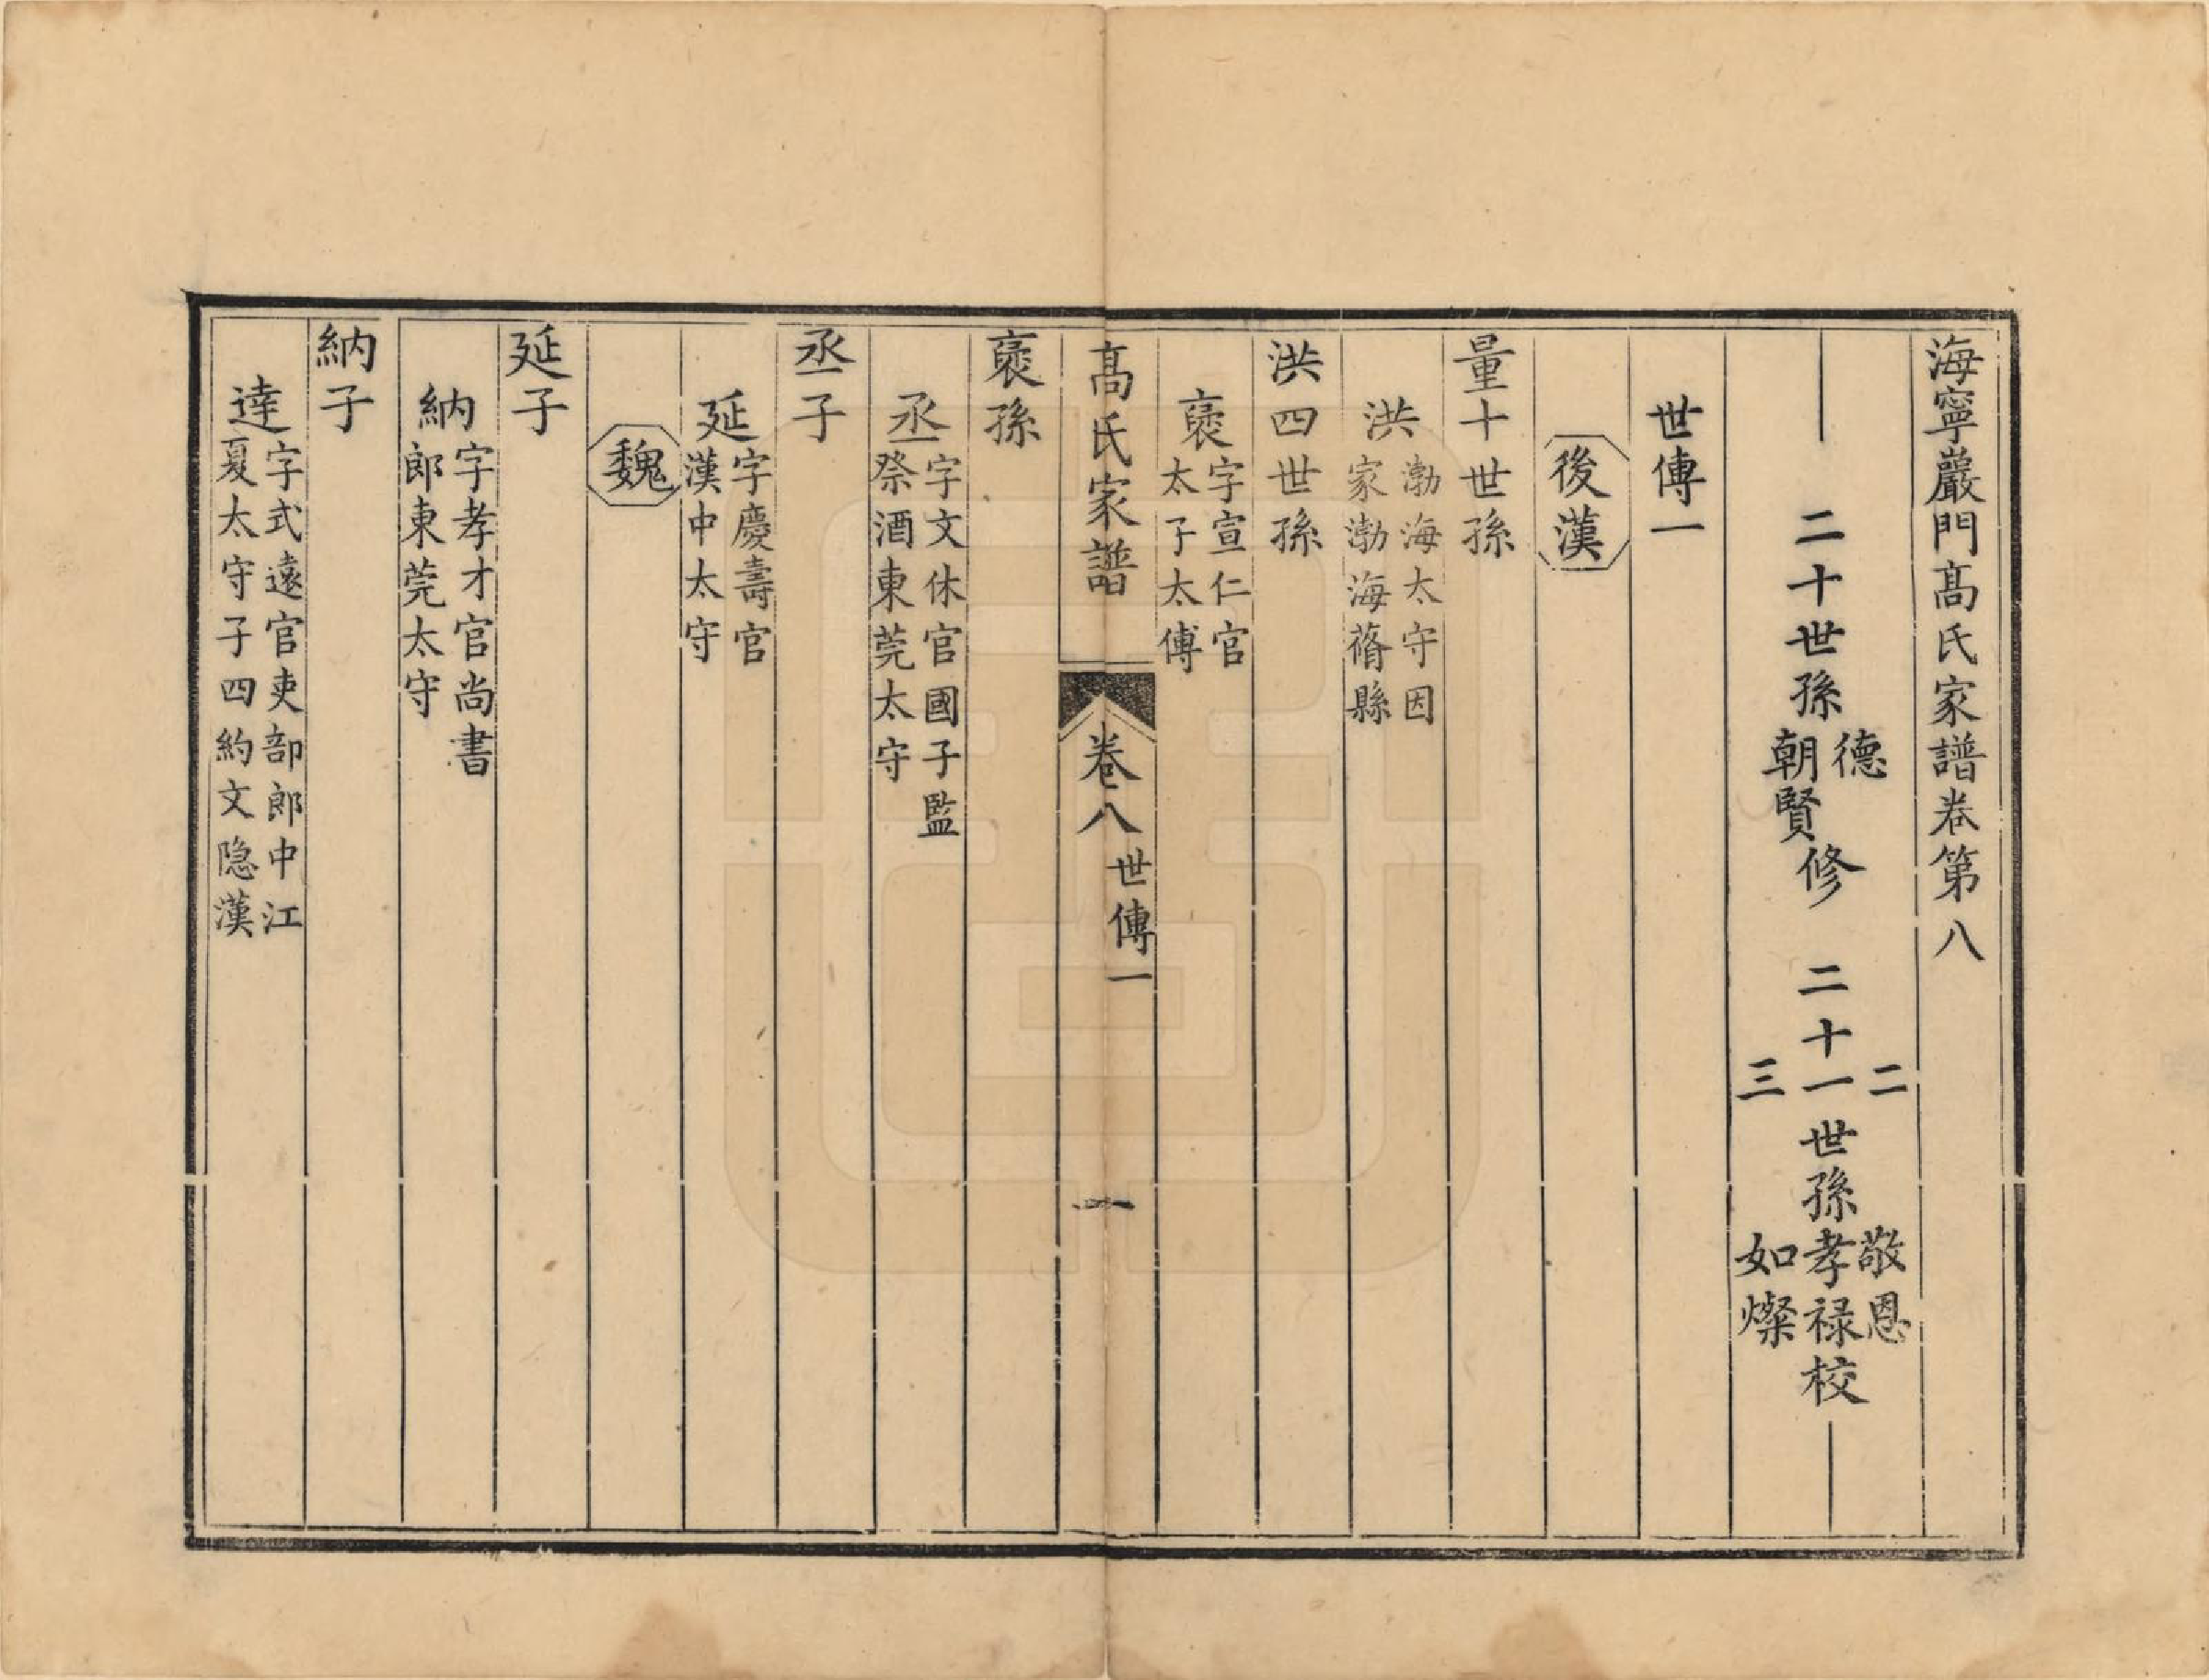 海寧巖門髙氏家譜卷第八
二十世孫德朝賢修 二十二一三世孫敬恩孝禄如燦校
世傳一
後漢
量十世孫
洪渤海太守因家渤海蓨縣
洪四世孫
褒字宣仁官太子太傅
髙氏家譜 卷八 世傳一 一
褒孫
丞字文休官國子監祭酒東莞太守
丞子
延字慶壽官漢中太守
魏
延子
納字孝才官尚書郎東莞太守
納子
達字式遠官吏部郎中江夏太守子四約文隐漢